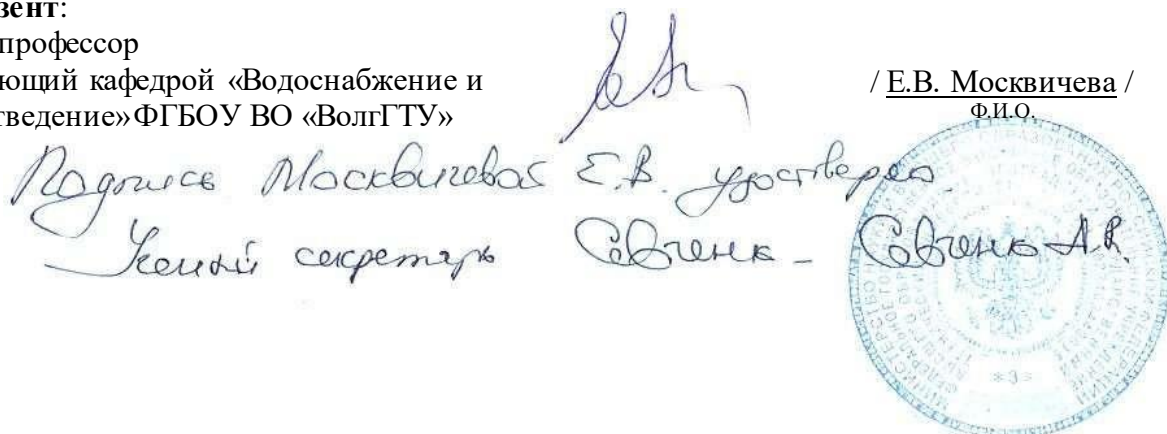 зент:
профессор
ющий кафедрой «Водоснабжение и
тведение» ФГБОУ ВО «ВолгГТУ»
/ Е.В. Москвичева /
Ф.И.О.
Подпись Москвичевой Е.В. удостверяю
Ученый секретарь Савченк - Савченко А.В.
*3*